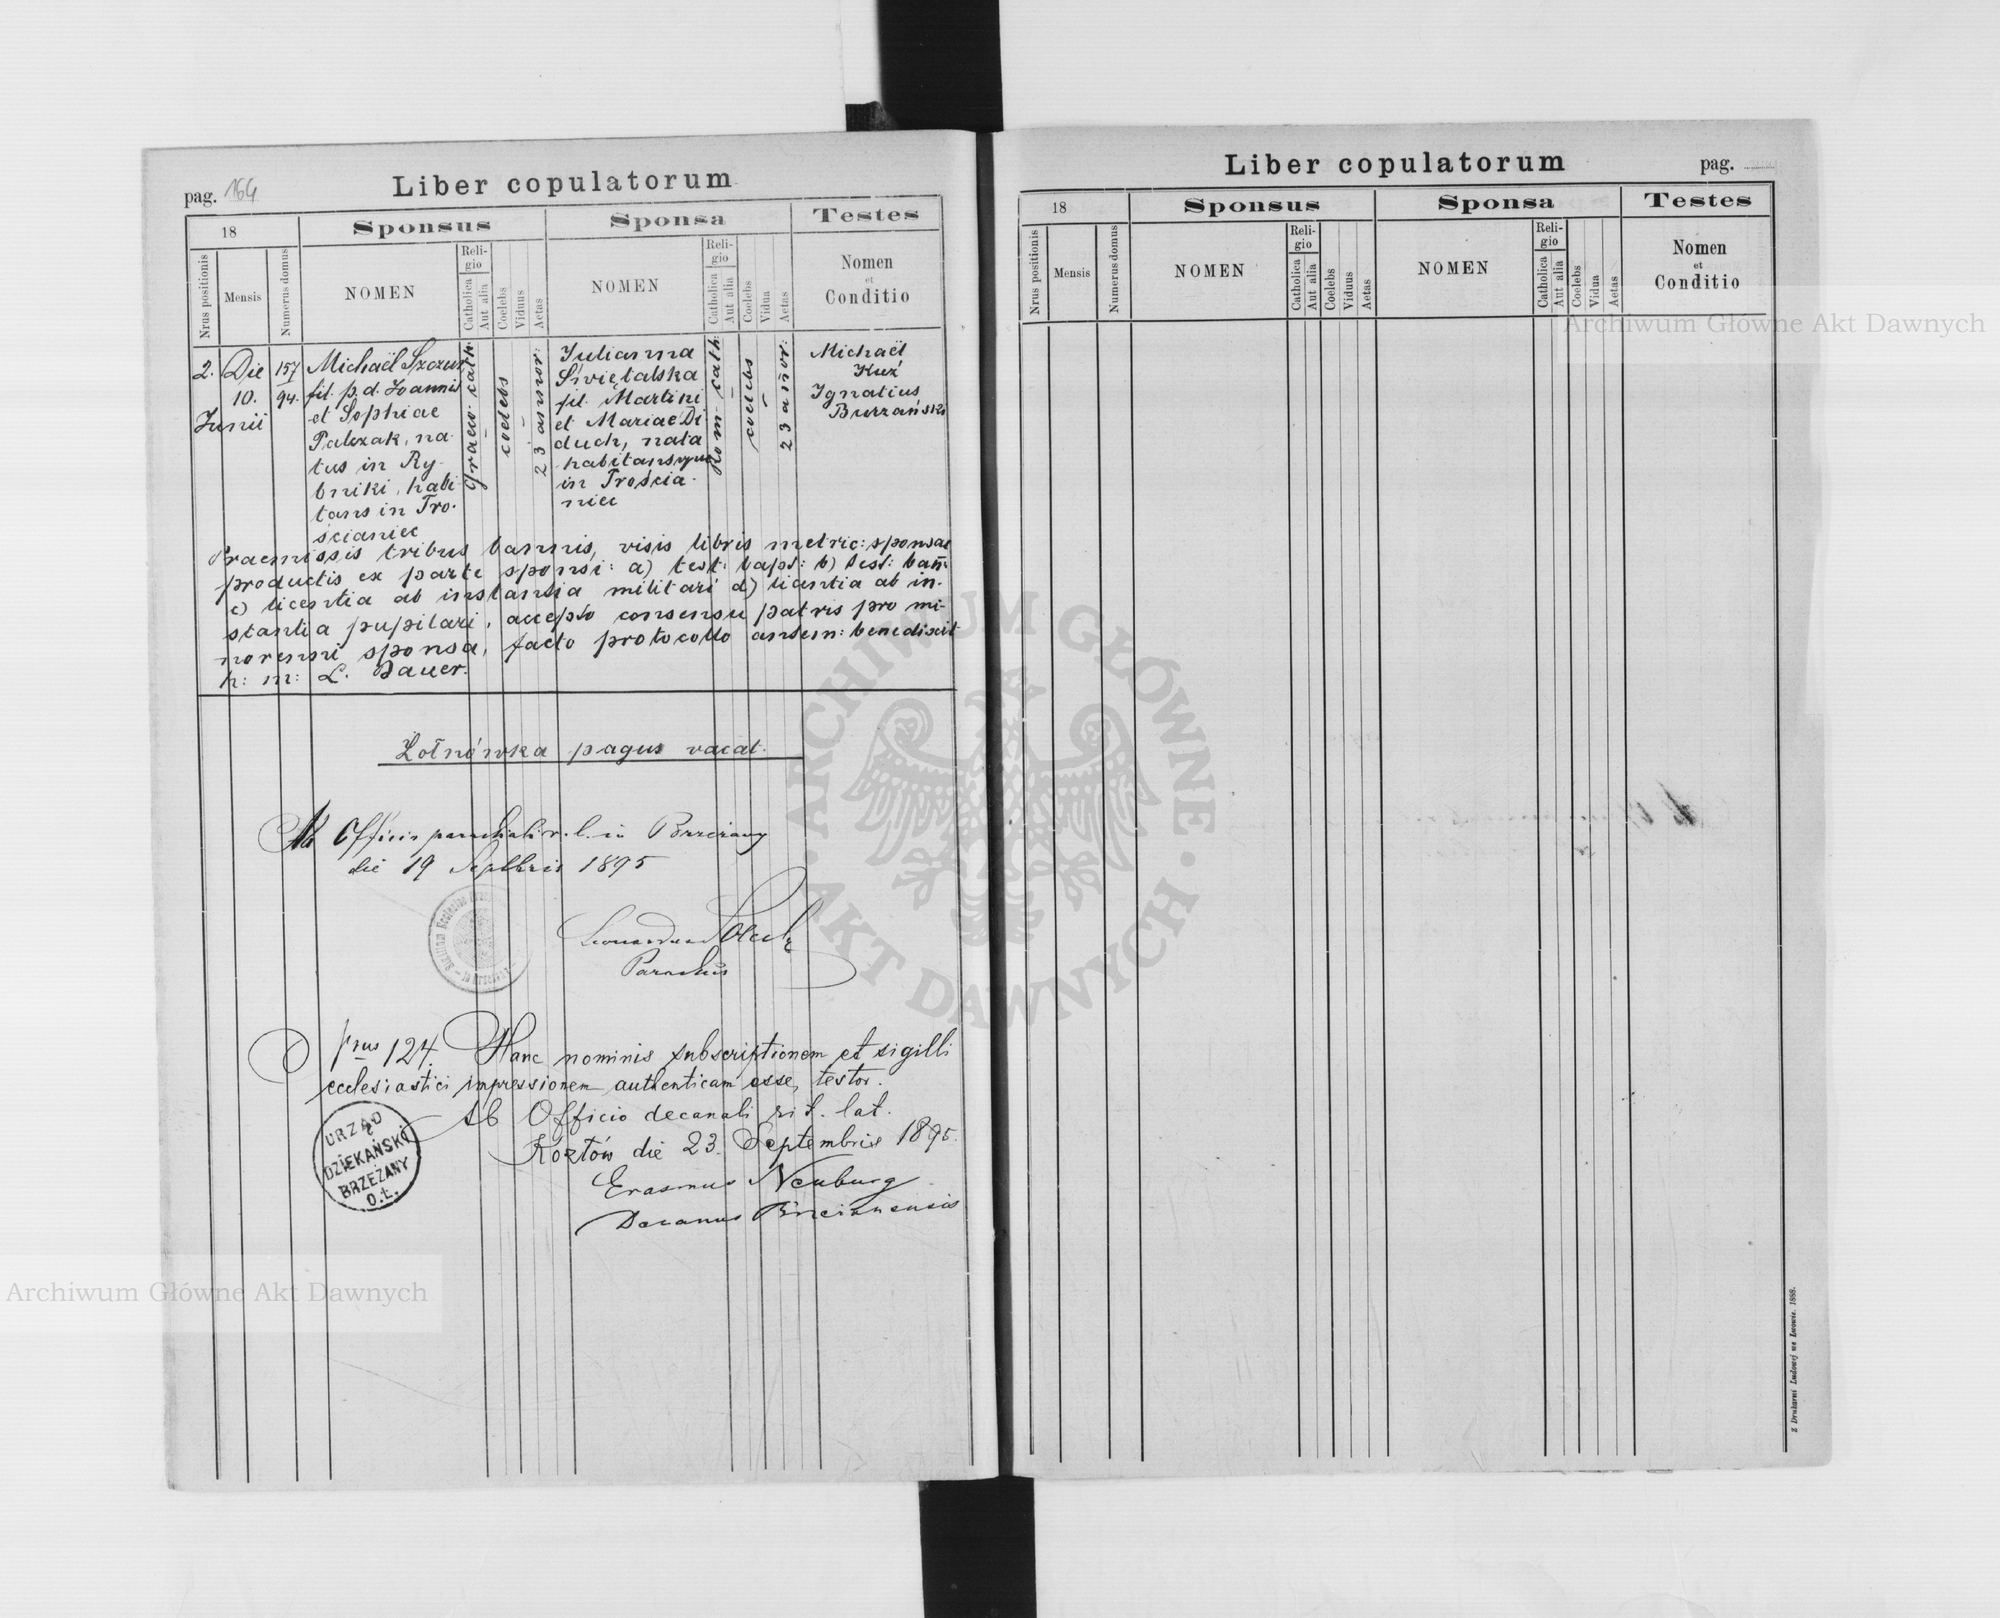 pag. 164
Liber copulatorum
18
Sponsus
Sponsa
Testes
Nrus positionis
Mensis
Numerus domus
NOMEN
Religio
Catholica
Aut alia
Coelebs
Viduus
Aetas
NOMEN
Religio
Catholica
Aut alia
Coelebs
Vidua
Aetas
Nomen
et
Conditio
2.
Die
10.
Junii
157
94.
Michaël Szczur
fil. p. d. Joannis
et Sophiae
Palczak, na-
tus in Ry-
bniki, habi-
tans in Tro-
ścianiec
graeco-cath.
coelebs
23 annor:
Julianna
Świętalska
fil. Martini
et Mariae Di-
duch, nata
habitansque
in Troscia-
niec
Rom-cath
coelebs
23 annor:
Michaël
Kuź
Ignatius
Burzański
Praemissis tribus bannis, visis libris metric: sponsae
productis ex parte sponsi: a) test: bapt: b) test: bañ:
c) licentia ab instantia militari d) licentia ab in-
stantia pupilari, accepto consensu patris pro mi-
norenni sponsa, facto protocollo ansem: benedixit
h: m: L. Bauer.
Żołnówka pagus vacat.
Ab Officio parochiali r. l. in Brzeżany
die 19 Septbris 1895
Parochus
Prus 124. Hanc nominis subscriptionem et sigilli
ecclesiastici impressionem authenticam esse, testor.
Ab Officio decanali rit. lat.
Kozłów die 23. Septembris 1895.
Erasmus Neuburg
Decanus Brzezanensis
URZĄD
DZIEKAŃSKI
BRZEŻANY
O.Ł.
Liber copulatorum
pag.
18
Sponsus
Sponsa
Testes
Nrus positionis
Mensis
Numerus domus
NOMEN
Religio
Catholica
Aut alia
Coelebs
Viduus
Aetas
NOMEN
Religio
Catholica
Aut alia
Coelebs
Vidua
Aetas
Nomen
et
Conditio
Z Drukarni Ludowej we Lwowie. 1888.
Archiwum Główne Akt Dawnych
Archiwum Główne Akt Dawnych
ARCHIWUM GŁÓWNE
AKT DAWNYCH